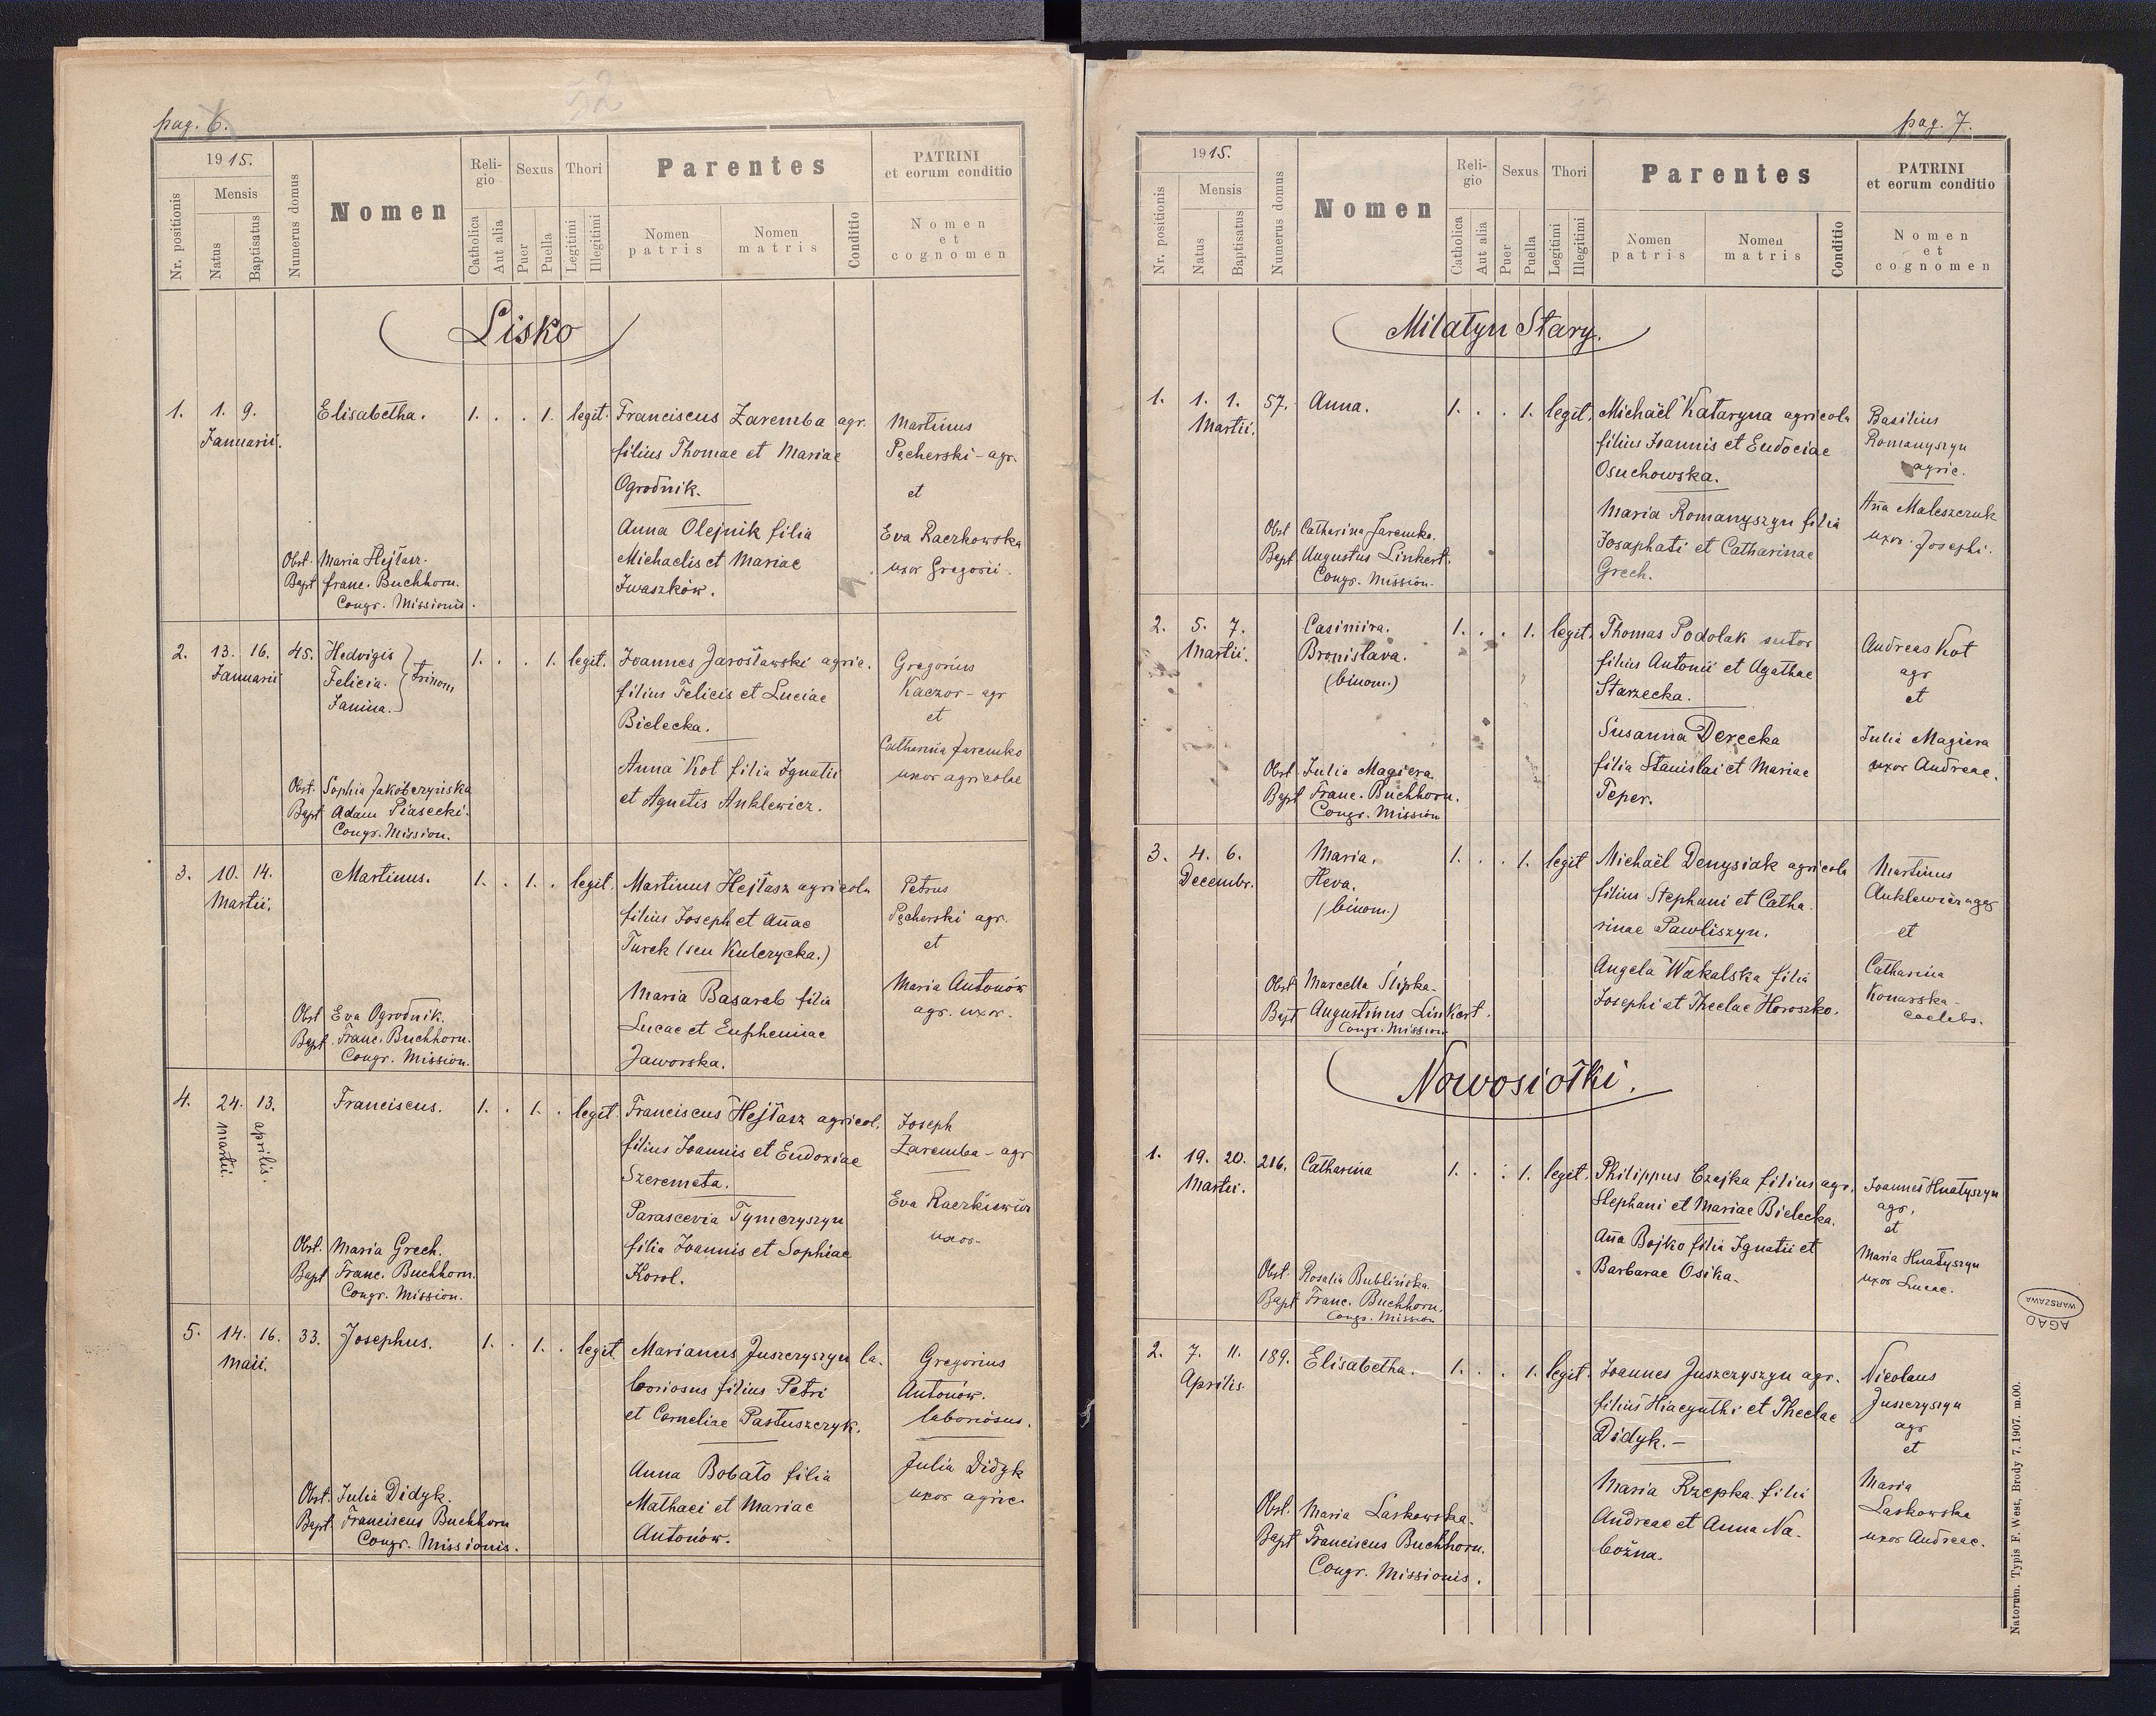 pag. 6.
1915.
Nr. positionis
Mensis
Natus
Baptisatus
Numerus domus
Nomen
Religio
Catholica
Aut alia
Sexus
Puer
Puella
Thori
Legitimi
Illegitimi
Parentes
Nomen patris
Nomen matris
Conditio
PATRINI
et eorum conditio
Nomen
et
cognomen
Lisko
1. 1. 9. Elisabetha. 1. . . 1. legit. Franciscus Zaremba agr. Martinus
Januarii. filius Thomae et Mariae Pęcherski - agr.
Ogrodnik. et
Anna Olejnik filia Eva Raczkowska
Obst. Maria Hejłasz. Michaelis et Mariae uxor Gregorii.
Bapt franc. Buchhorn. Iwaszków.
Congr. Missionis.
2. 13. 16. 45. Hedvigis 1. . . 1. legit. Joannes Jarosławski agric. Gregorius
Januarii Felicia. trinom filius Felicis et Luciae Kaczor - agr
Janina. Bielecka. et
Catharina Jaremko
Anna Kot filia Ignatii uxor agricolae
Obst. Sophia Jakóbczyńska et Agnetis Anklewicz.
Bapt Adam Piasecki.
Congr. Mission.
3. 10. 14. Martinus. 1. . 1. . legit. Martinus Hejłasz agricola Petrus
Martii. filius Joseph et Annae Pęcherski agr.
Turek (seu Kulczycka.) et
Maria Basarab filia Maria Antonów
Obst Eva Ogrodnik. Lucae et Eupheniae agr. uxor.
Bapt. Franc. Buchhorn. Jaworska.
Congr. Mission.
4. 24. 13. Franciscus. 1. . 1. . legit. Franciscus Hejłasz agricol. Joseph
Martii. aprilis. filius Joannis et Eudoxiae Zaremba - agr
Szeremeta.
Parascevia Tymczyszyn Eva Raczkiewicz
Obst. Maria Grech. filia Joannis et Sophiae uxor.
Bapt Franc. Buchhorn. Korol.
Congr. Mission.
5. 14. 16. 33. Josephus. 1. . 1. . legit. Marianus Juszczyszyn la- Gregorius
Maii. boriosus filius Petri Antonów.
et Corneliae Pastuszczyk. laboriosus.
Anna Bobało filia Julia Didyk
Obst. Julia Didyk. Mathaei et Mariae uxor agric.
Bapt. Franciscus Buchhorn Antonów.
Congr. Missionis.
pag. 7.
1915.
Nr. positionis
Mensis
Natus
Baptisatus
Numerus domus
Nomen
Religio
Catholica
Aut alia
Sexus
Puer
Puella
Thori
Legitimi
Illegitimi
Parentes
Nomen patris
Nomen matris
Conditio
PATRINI
et eorum conditio
Nomen
et
cognomen
Milatyn Stary.
1. 1. 1. 57. Anna. 1. . . 1. legit. Michaël Kataryna agricola Basilius
Martii. filius Joannis et Eudociae Romanyszyn
Osuchowska. agric.
Maria Romanyszyn filia Anna Maleszczuk
Obst Catharina Jaremko. Josaphati et Catharinae uxor. Josephi.
Bapt Augustus Linkert. Grech.
Congr. Mission.
2. 5. 7. Casimira. 1. . . 1. legit. Thomas Podolak sutor Andreas Kot
Martii. Bronislava. filius Antonii et Agathae agr
(binom.) Starzecka. et
Susanna Derecka Julia Magiera
Obst Julia Magiera. filia Stanislai et Mariae uxor Andreae.
Bapt Franc. Buchhorn. Teper.
Congr. Mission
3. 4. 6. Maria. 1. . . 1. legit Michaël Denysiak agricola Martinus
Decembr. Heva. filius Stephani et Catha- Anklewicz agr
(binom.) rinae Pawliszyn. et
Angela Wakalska filia Catharina
Obst Marcella Slipka. Josephi et Theclae Horoszko. Konarska -
Bapt Augustinus Linkert. caelebs.
Congr. Mission
Nowosiołki.
1. 19. 20. 216. Catharina 1. . . 1. legit. Philippus Czajka filius agr. Joannes Hnatyszyn
Martii. Stephani et Mariae Bielecka. agr.
et
Anna Bojko filia Ignatii et Maria Hnatyszyn
Obst. Rosalia Bublińska. Barbarae Osika. uxor Lucae.
Bapt Franc. Buchhorn.
Congr. Mission
2. 7. 11. 189. Elisabetha. 1. . . 1. legit. Joannes Juszczyszyn agr. Nicolaus
Aprilis. filius Hiacynthi et Theclae Juszczyszyn
Didyk. - agr
et
Maria Rzepka filia Maria
Obst. Maria Laskowska. Andreae et Anna Na- Laskowska
Bapt Franciscus Buchhorn. bożna. uxor Andreae.
Congr. Missionis.
AGAD
WARSZAWA
Natorum. Typis F. West, Brody 7. 1907. m.00.